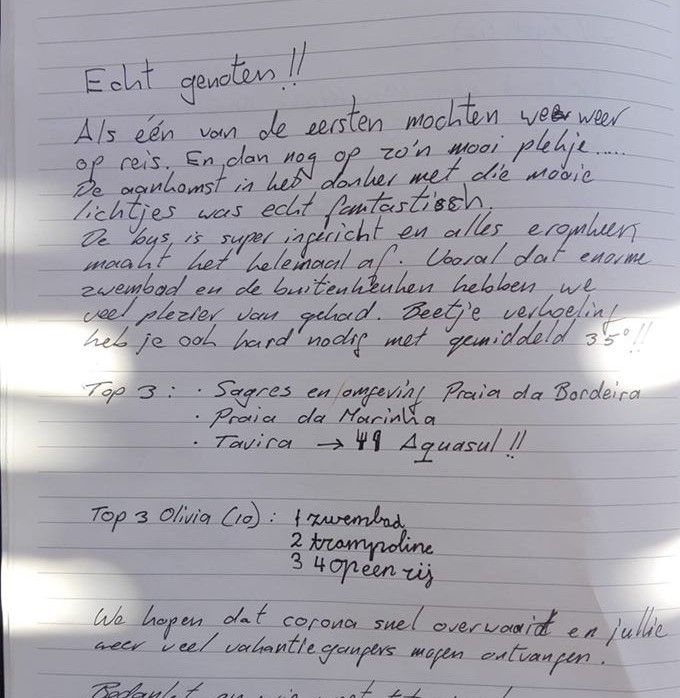 Echt genoten!!
Als één van de eersten mochten we weer
op reis. En dan nog op zo'n mooi plekje.....
De aankomst in het donker met die mooie
lichtjes was echt fantastisch.
De bus is super ingericht en alles eromheen
maakt het helemaal af. Vooral dat enorme
zwembad en de buitenkeuken hebben we
veel plezier van gehad. Beetje verkoeling
heb je ook hard nodig met gemiddeld 35°!!
Top 3: · Sagres en omgeving Praia da Bordeira
· Praia da Marinha
· Tavira → Aquasul!!
Top 3 Olivia (10): 1 zwembad
2 trampoline
3 4 op een rij
We hopen dat corona snel overwaait en jullie
weer veel vakantiegangers mogen ontvangen.
Bedankt